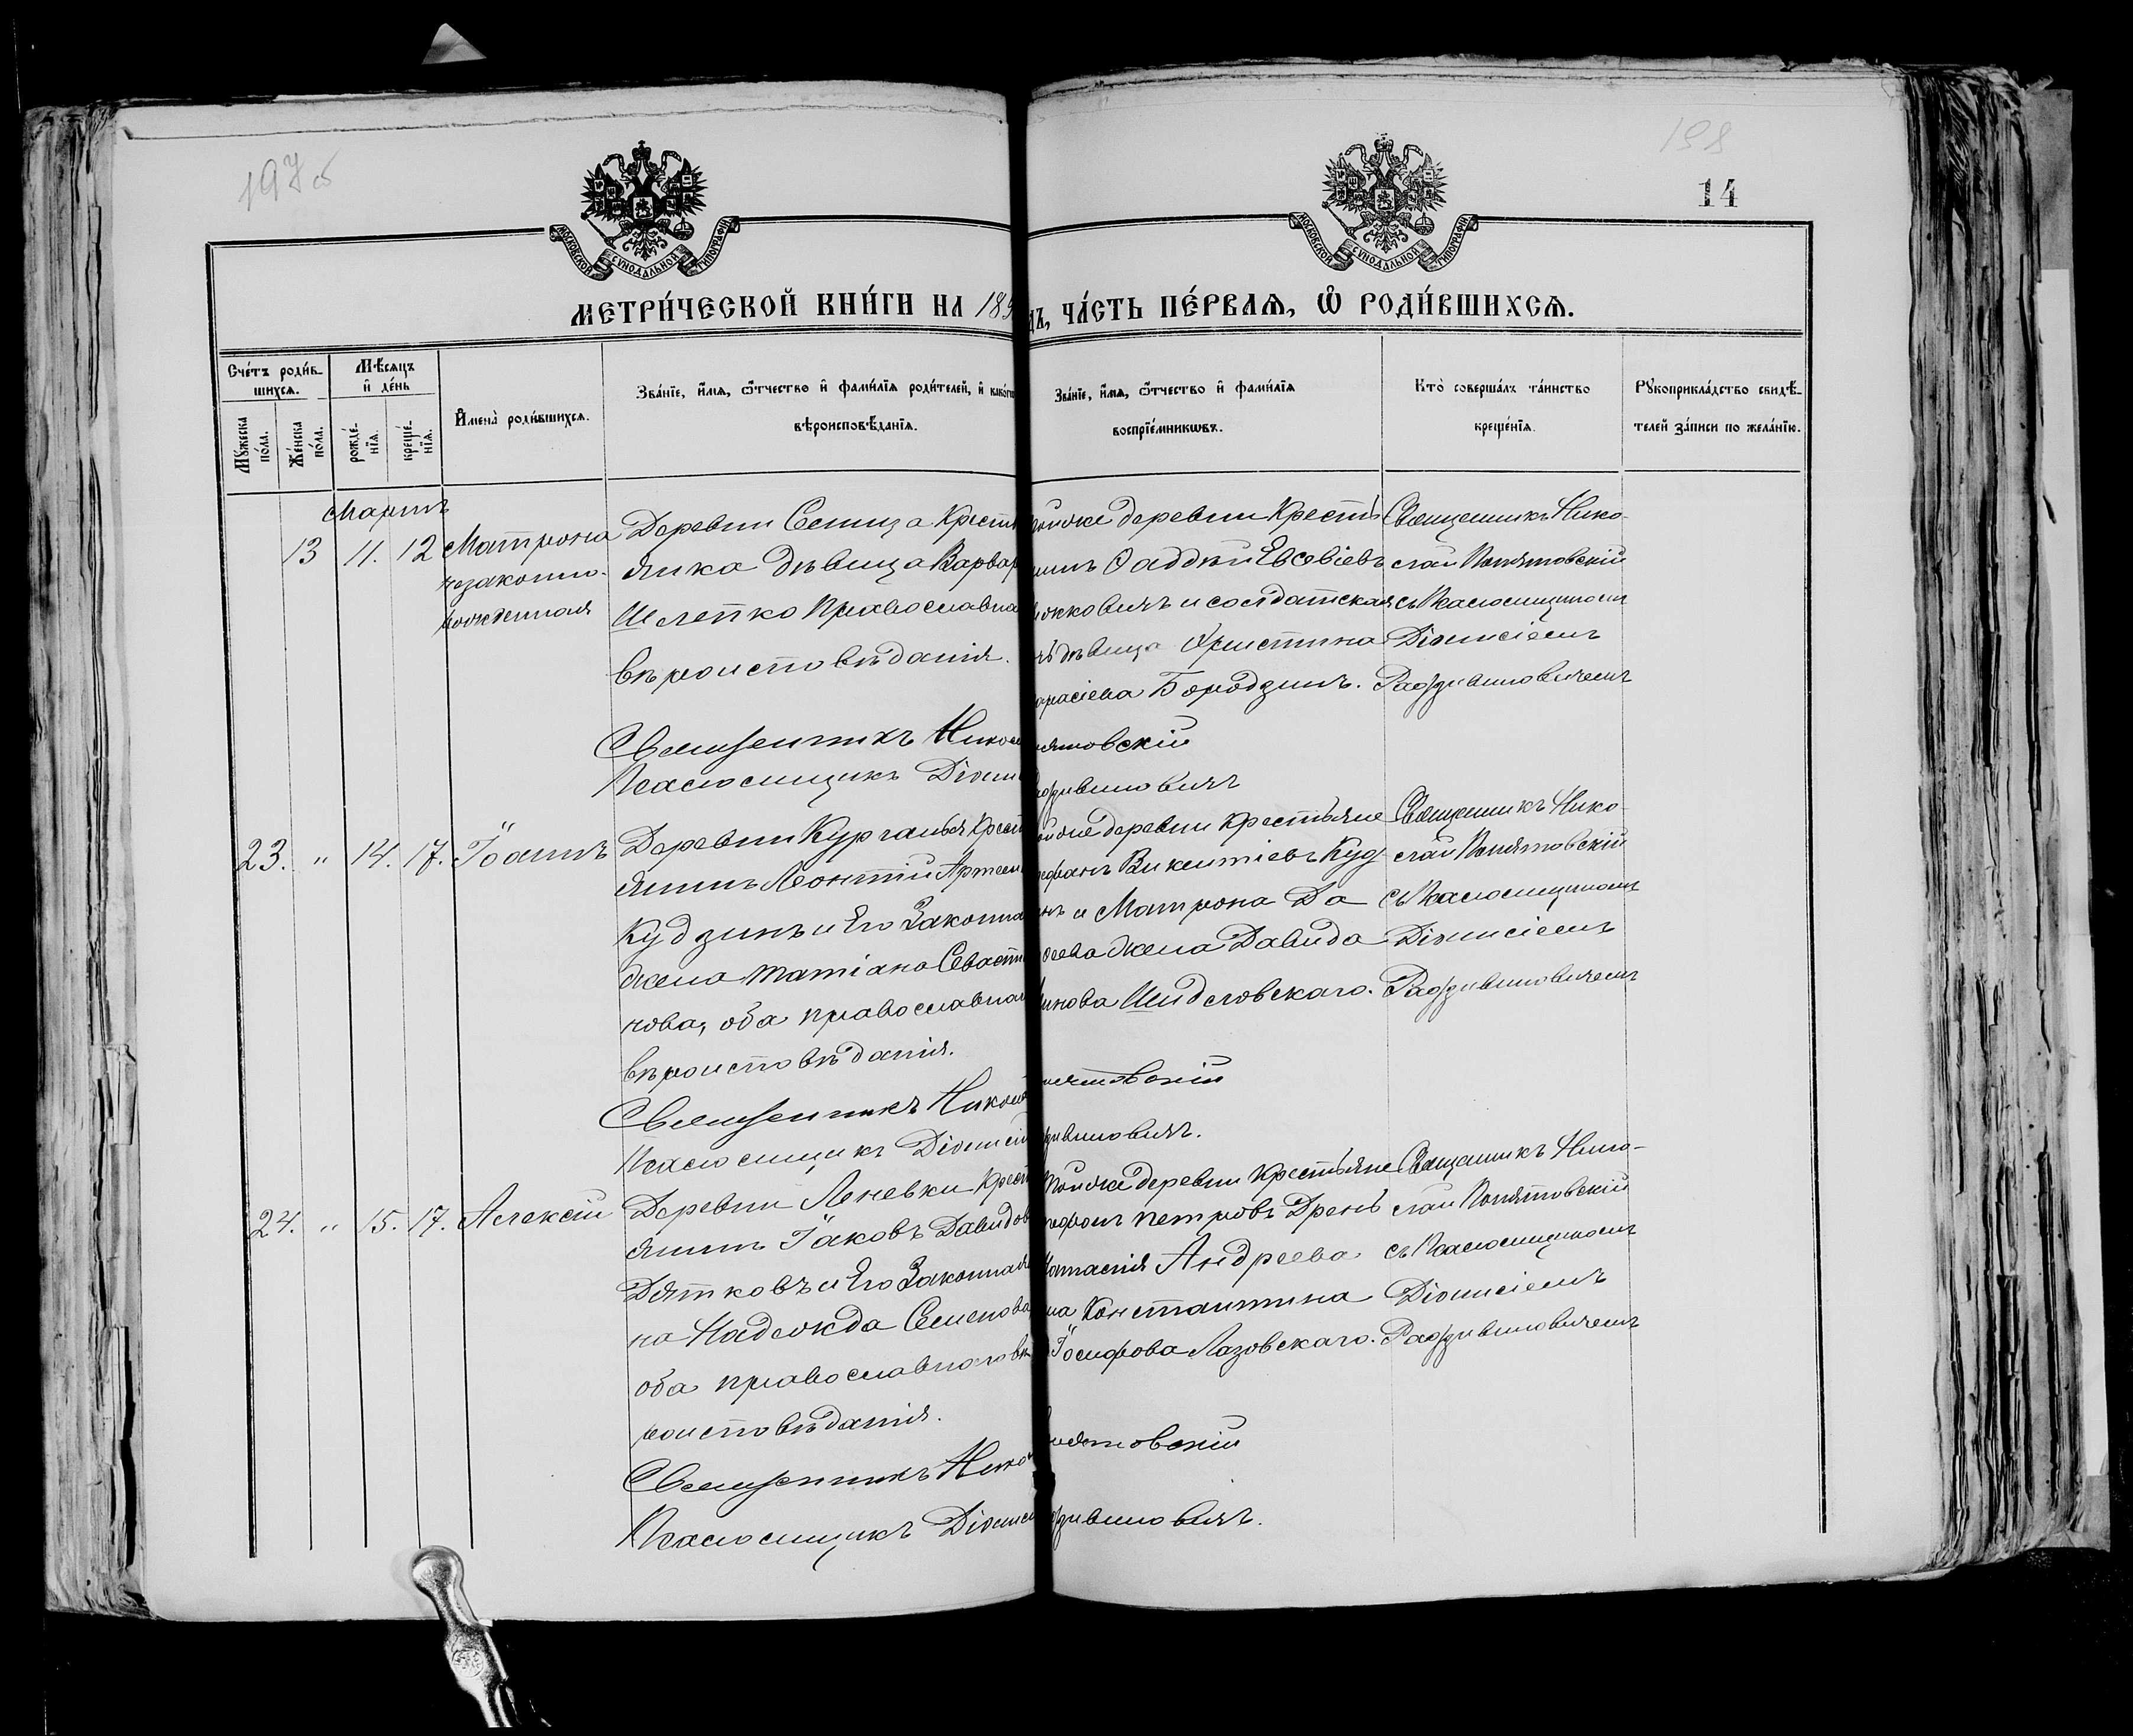 197об
198
14
МОСКОВСКОЙ СѴНОДАЛЬНОЙ ТИПОГРАФІИ
МОСКОВСКОЙ СѴНОДАЛЬНОЙ ТИПОГРАФІИ
МЕТРИ́ЧЕСКОЙ КНИ́ГИ НА 189
ЧА́СТЬ ПЕ́РВАѦ, Ѡ҆ РОДИ́ВШИХСѦ.
Сче́тъ роди́в-
шихсѧ.
Мꙋ́жеска
по́ла.
Же́нска
по́ла.
Мѣ́сѧцъ
и҆ де́нь
рожде́-
нїѧ.
креще́-
нїѧ.
И҆мена̀ роди́вшихсѧ.
Зва́нїе, и҆́мѧ, ѻ҆́тчество и҆ фами́лїѧ роди́телей, и҆ како́гѡ
вѣроисповѣ́данїѧ.
Зва́нїе, и҆́мѧ, ѻ҆́тчество и҆ фами́лїѧ
воспрїе́мникѡвъ.
Кто̀ соверша́лъ та́инство
креще́нїѧ.
Рꙋкоприкла́дство свидѣ́-
телей за́писи по жела́нїю.
Мартъ
13 11. 12
Матрона
незаконно-
рожденная
Деревни Сенища Кресть
янка дѣвица Варвар
Шлепко Православна
вѣроисповѣданія.
деревни Кресть
Ѳаддей Евсевіевъ
и солдатская
дѣвица Христина
Бородзинъ.
Священникъ Нико-
лай Понятовскій
съ Псаломщикомъ
Діонисіемъ
Радзивиновичемъ
Священникъ Никол
нятовскій
Псаломщикъ Діони
дзивиновичъ
23. " 14. 17. Іоаннъ
Деревни Курганья Крест
янинъ Леонтій Артем
Кудзинъ и Его Законна
жена Татіана Севасть
нова, оба православна
вѣроисповѣданія.
деревни крестьяне
Викентіевъ Куд
и Матрона Да
жена Давида
Шидловскаго.
Священникъ Нико-
лай Понятовскій
съ Псаломщикомъ
Діонисіемъ
Радзивиновичемъ
Священникъ Никол
нятовскій
Псаломщикъ Діонисій
зивиновичъ.
24. " 15. 17. Алексій
Деревни Леневки Крест
янинъ Іаковъ Давидов
Дятковъ и Его Законная
на Надежда Семенова
оба православнаго вѣ
роисповѣданія.
деревни Крестьяне
Петровъ Дрень
Андреева
на Константина
Іосифова Лазовскаго.
Священникъ Нико-
лай Понятовскій
съ Псаломщикомъ
Діонисіемъ
Радзивиновичемъ
Священникъ Нико
нятовскій
Псаломщикъ Діониси
дзивиновичъ.